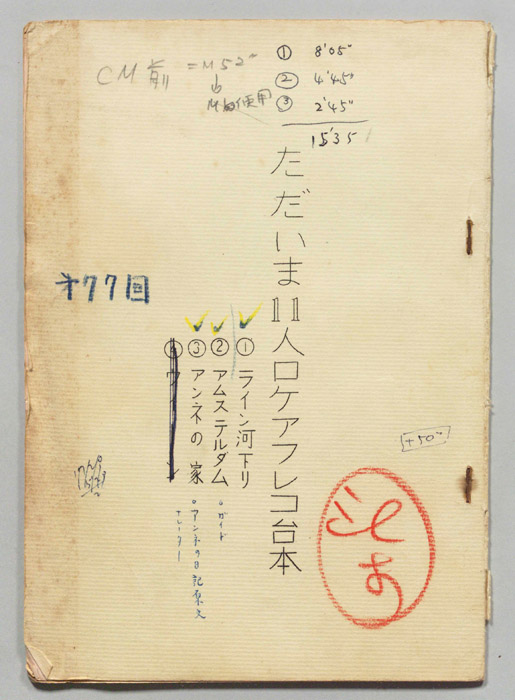 ① 8'05"
② 4'45"
③ 2'45"
15'35
CM前 =M52"
ただいま11人ロケアフレコ台本
①ライン河下り
②アムステルダム
・ガイド
③アンネの家
・アンネの日記原文
ナレーター
④ウィーン
才77回
+50"